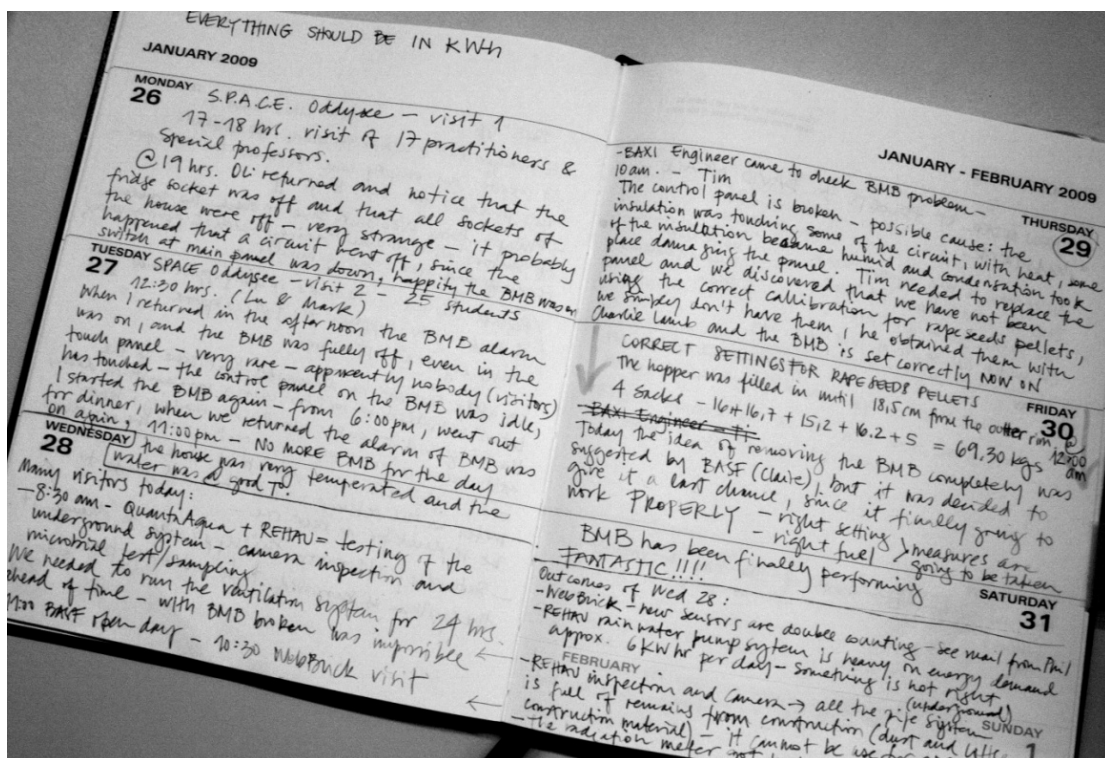 EVERYTHING SHOULD BE IN KWh
JANUARY 2009
MONDAY
26
S.P.A.C.E. Oddysee – visit 1
17-18 hrs. visit of 17 practitioners &
Special professors.
@ 19 hrs. Oli returned and notice that the
fridge socket was off and that all sockets of
the house were off – very strange – it probably
happened that a circuit went off, since the
switch at main panel was down, happity the BMB was on
TUESDAY
27
SPACE Oddysee – visit 2 – 25 students
12:30 hrs. (Lu & Mark)
When I returned in the afternoon the BMB alarm
was on, and the BMB was fully off, even in the
touch panel – very rare – apparently nobody (visitors)
has touched – the control panel on the BMB was idle,
I started the BMB again – from 6:00pm, went out
for dinner, when we returned the alarm of BMB was
on again, 11:00pm – NO MORE BMB for the day
WEDNESDAY
28
the house was very temperated and the
water was @ good T°.
Many visitors today:
– 8:30 am – QuantaAqua + REHAU = testing of the
underground system – camera inspection and
microbial test/sampling
We needed to run the ventilation system for 24 hrs.
ahead of time – with BMB broken was impossible ←
11:00 BASF open day – 10:30 WebBrick visit ←
JANUARY - FEBRUARY 2009
THURSDAY
29
-BAXI Engineer came to check BMB problem –
10am. – Tim
The control panel is broken – possible cause: the
insulation was touching some of the circuit, with heat, some
of the insulation became humid and condensation took
place damaging the panel. Tim needed to replace the
panel and we discovered that we have not been
using the correct callibration for rape seeds pellets,
we simply don't have them, he obtained them with
Charlie Lamb and the BMB is set correctly NOW ON
FRIDAY
30
CORRECT SETTINGS FOR RAPE SEEDS PELLETS
The hopper was filled in until 18,5 cm from the outter rim @
12:00 am
4 Sacks – 16+16,7 + 15,2 + 16.2 + 5 = 69.30 kgs
BAXI Engineer – Ti
Today the idea of removing the BMB completely was
suggested by BASF (Claire), but it was decided to
give it a last chance, since it finally going to
work PROPERLY – right setting > measures are
– right fuel going to be taken
BMB has been finally performing
FANTASTIC!!!!
SATURDAY
31
Outcomes of Wed 28:
-WebBrick – new sensors are double counting – see mail from Phil
-REHAU rain water pump system is heavy on energy demand
approx. 6 KW hr per day – something is not right
FEBRUARY
SUNDAY
1
-REHAU inspection and Camera → all the pipe system (underground)
is full of remains from construction (dust and
construction material) – it cannot be use for
– the radiation meter got